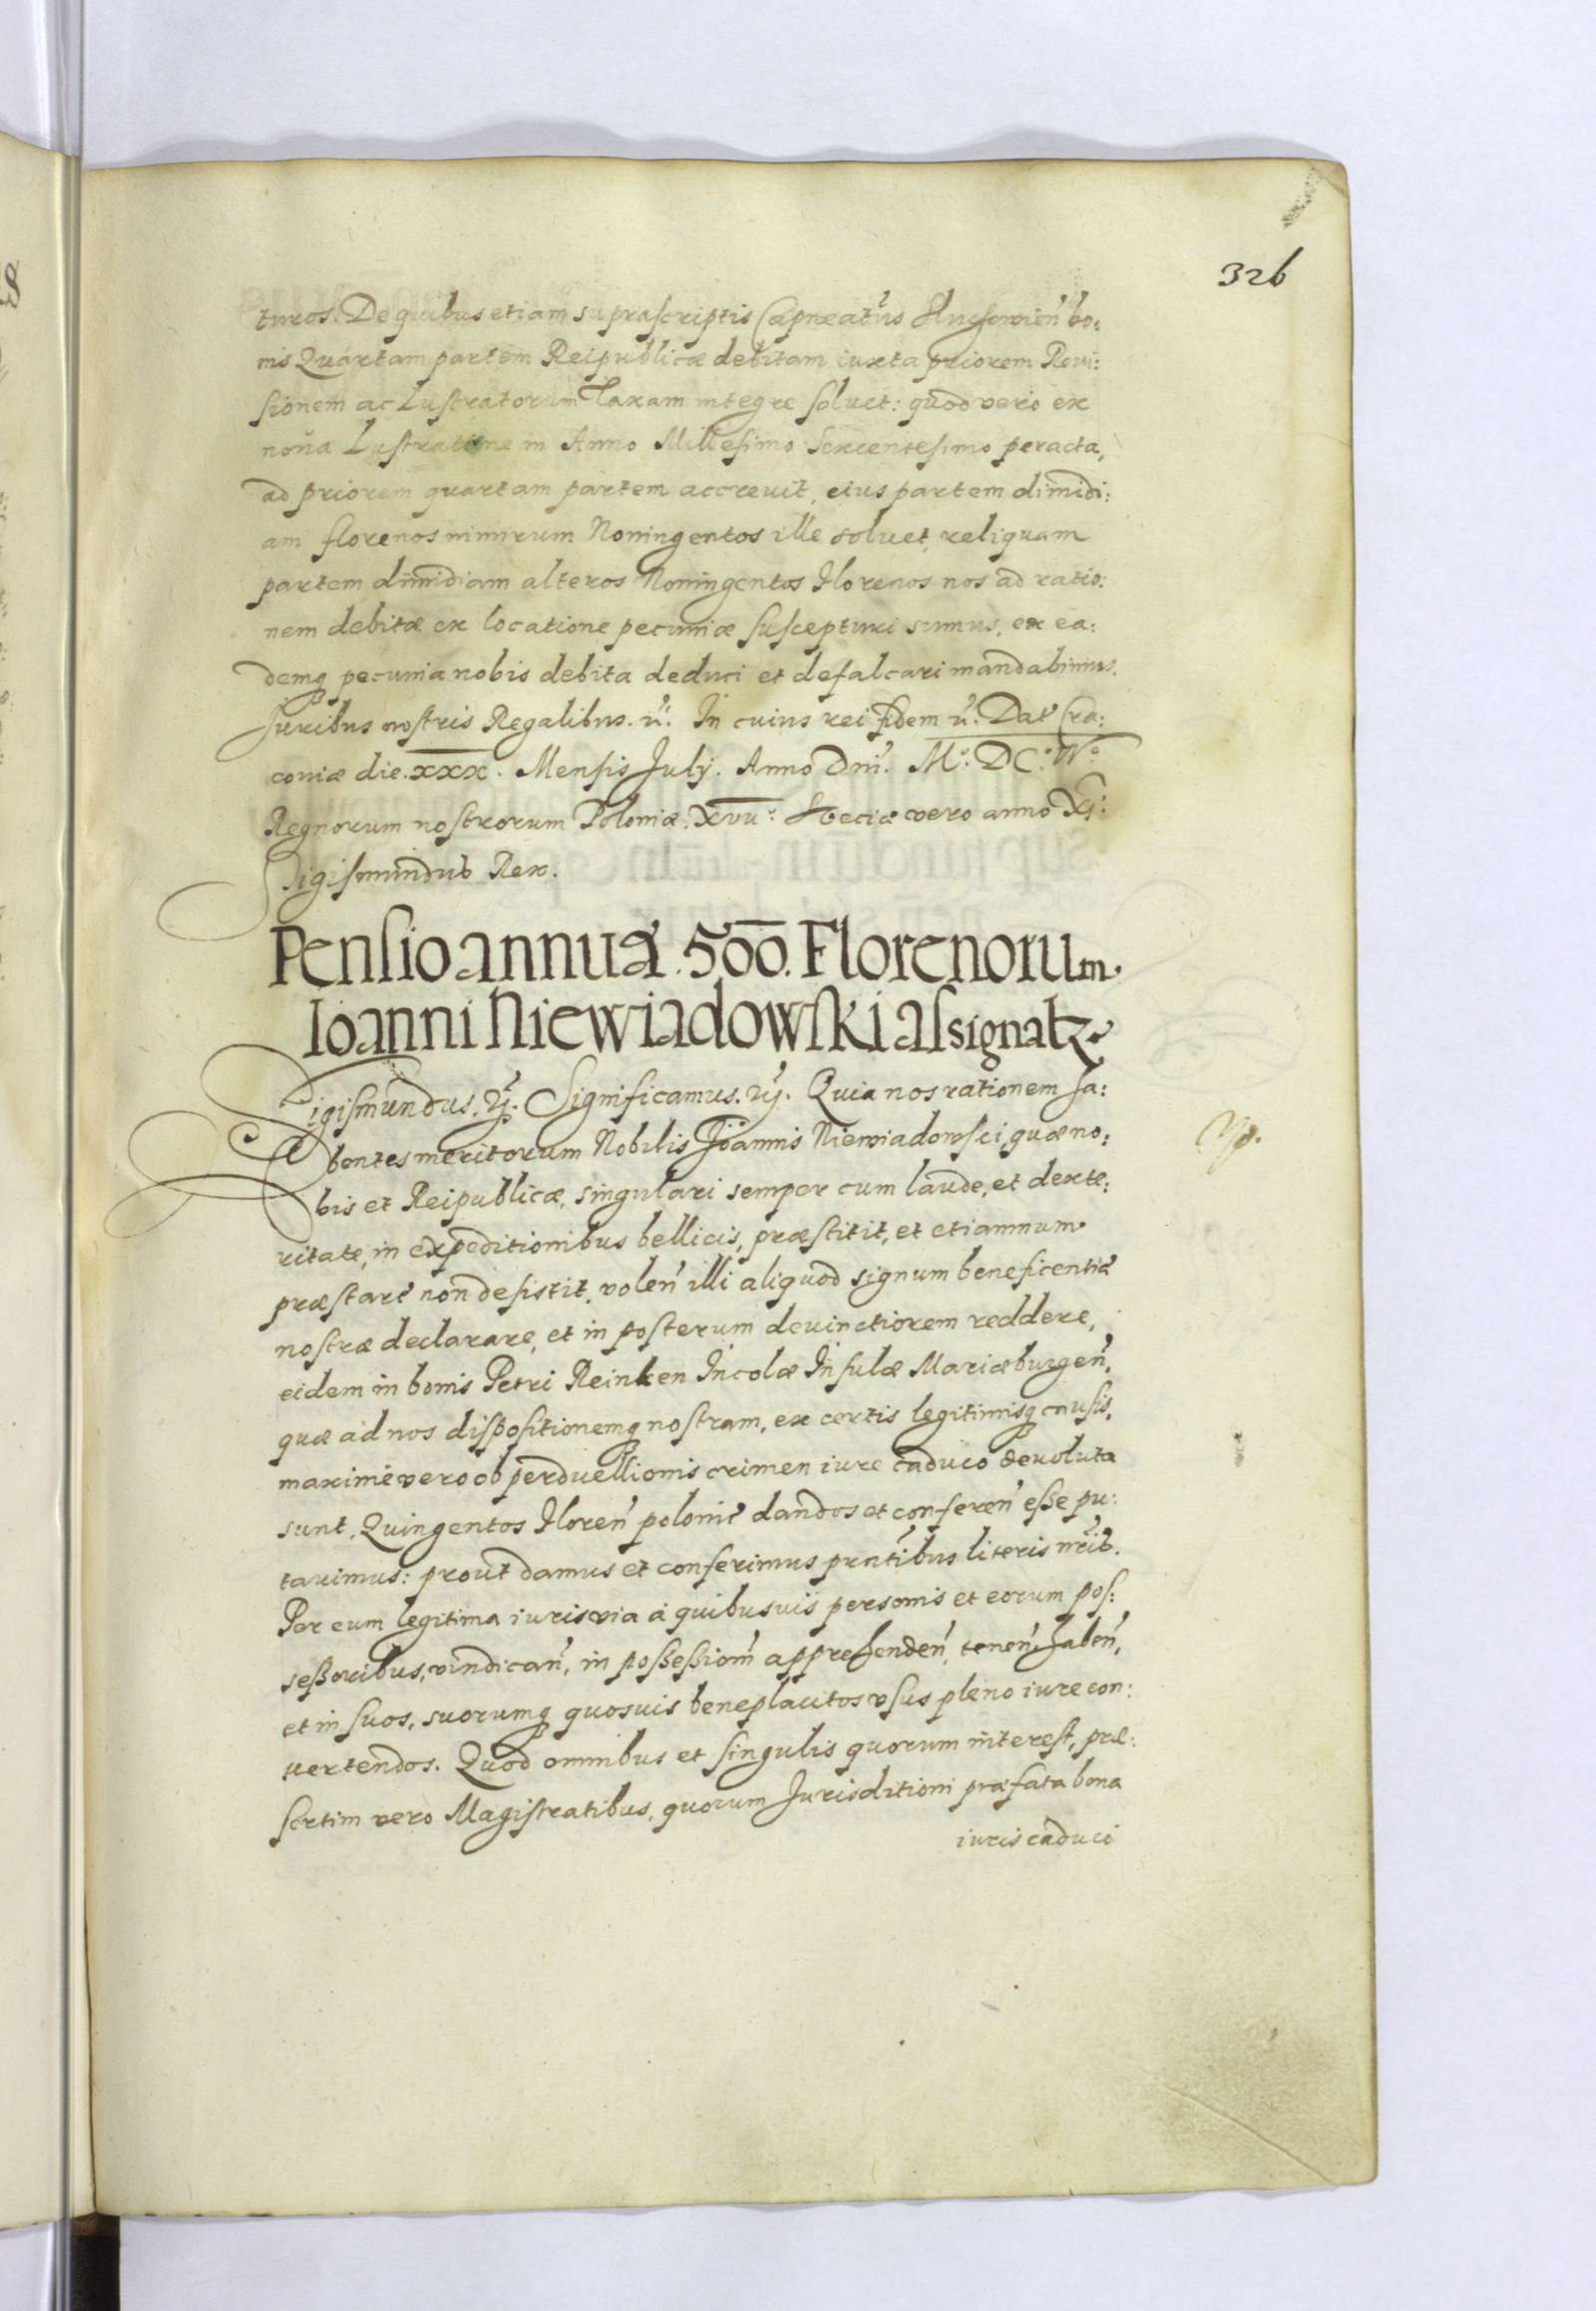 326
turos. De quibus etiam suprascriptis Capneatus bo:
nis Quartam partem Reipublicæ debitam iuxta priorem Reui:
sionem ac Lustratorum Taxam integre soluet: quod vero ex
noua Lustratione in Anno Millesimo Sexcentesimo peracta,
ad priorem quartam partem accreuit, eius partem dimidi:
am florenos nimirum Noningentos ille soluet, reliquam
partem dimidiam alteros Noningentos Florenos nos ad ratio:
nem debitæ ex locatione pecuniæ suscepturi sumus, ex ea:
demq pecunia nobis debita deduci et defalcari mandabimus.
Juribus nostris Regalibus. In cuius rei fidem Dat Cra:
couiæ die. xxx. Mensis July. Anno Dni. M°. DC°.
Regnorum nostrorum Poloniæ. Xvii°. Sueciæ vero anno
Sigismundus Rex.
Pensio annua. 500. Florenorum.
Ioanni Niewiadowski assignatz
Sigismundus. Significamus. Quia nos rationem ha:
bentes meritorum Nobilis Joannis Niewiadowsci, quæ no:
bis et Reipublicæ, singulari semper cum laude, et dexte:
ritate, in expeditionibus bellicis, præstitit, et etiamnum
præstare non desistit, volen illi aliquod signum beneficentiæ
nostræ declarare, et in posterum deuinctiorem reddere,
eidem in bonis Petri Reinken Incolæ Insulæ Mariæburgen,
quæ ad nos dispositionemq nostram, ex certis legitimisq causis,
maxime vero ob perduellionis crimen iure caduco deuoluta
sunt, Quingentos Floren polonic dandos et conferen esse pu:
tauimus: prout damus et conferimus prntibus literis nrib.
Per eum legitima iuris via a quibusuis personis et eorum pos:
sessoribus, vindican, in possessiom apprehenden, tenen, haben,
et in suos, suorumq quosuis beneplacitos vsus pleno iure con:
uertendos. Quod omnibus et singulis quorum interest, præ:
sertim vero Magistratibus, quorum Jurisditioni præfata bona
iuris caduci